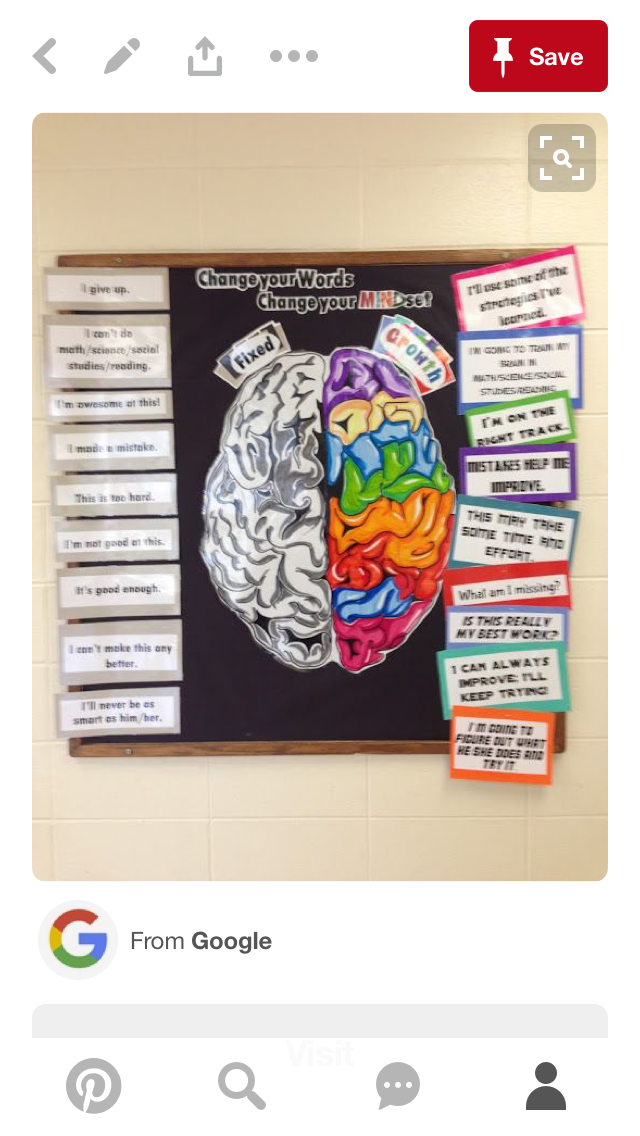 Save
Change your Words
Change your MINDset
Fixed
Growth
I give up.
I can't do
math/science/social
studies/reading.
I'm awesome at this!
I made a mistake.
This is too hard.
I'm not good at this.
It's good enough.
I can't make this any
better.
I'll never be as
smart as him/her.
I'll use some of the
strategies I've
learned.
I'M GOING TO TRAIN MY
BRAIN IN
MATH/SCIENCE/SOCIAL
STUDIES/READING
I'M ON THE
RIGHT TRACK.
MISTAKES HELP ME
IMPROVE.
THIS MAY TAKE
SOME TIME AND
EFFORT.
What am I missing?
IS THIS REALLY
MY BEST WORK?
I CAN ALWAYS
IMPROVE; I'LL
KEEP TRYING!
I'M GOING TO
FIGURE OUT WHAT
HE SHE DOES AND
TRY IT
From Google
Visit